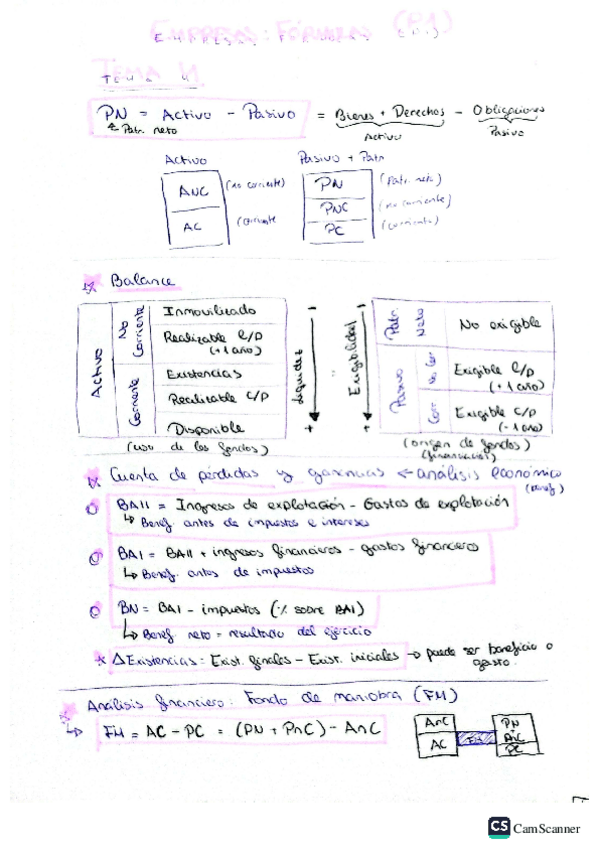 EMPRESAS: FÓRMULAS (P1)
TEMA 4
PN = Activo - Pasivo = Bienes + Derechos - Obligaciones
Patr. neto
Activo
Pasivo
Activo
ANC (no corriente)
AC (corriente
Pasivo + Patr
PN (Patr. neto)
PNC (no corriente)
PC (corriente)
Balance
Activo
No Corriente
Inmovilizado
Realizable L/P (+1 año)
Corriente
Existencias
Realizable C/P
Disponible
(uso de los fondos)
- Liquidez +
- Exigibilidad +
Patr. Neto
No exigible
Pasivo
No Cor
Exigible L/P (+1 año)
Corr
Exigible C/P (-1 año)
(origen de fondos)
(financiación)
Cuenta de pérdidas y ganancias ← análisis económico
(benef)
BAII = Ingresos de explotación - Gastos de explotación
↳ Benef. antes de impuestos e intereses
BAI = BAII + ingresos financieros - gastos financieros
↳ Benef. antes de impuestos
BN = BAI - impuestos (% sobre BAI)
↳ Benef. neto = resultado del ejercicio
* ΔExistencias = Exist. finales - Exist. iniciales → puede ser beneficio o gasto.
Análisis financiero: Fondo de maniobra (FM)
↳ FM = AC - PC = (PN + PnC) - AnC
AnC
AC
FM
PN
+
AnC
PC
7
CS CamScanner